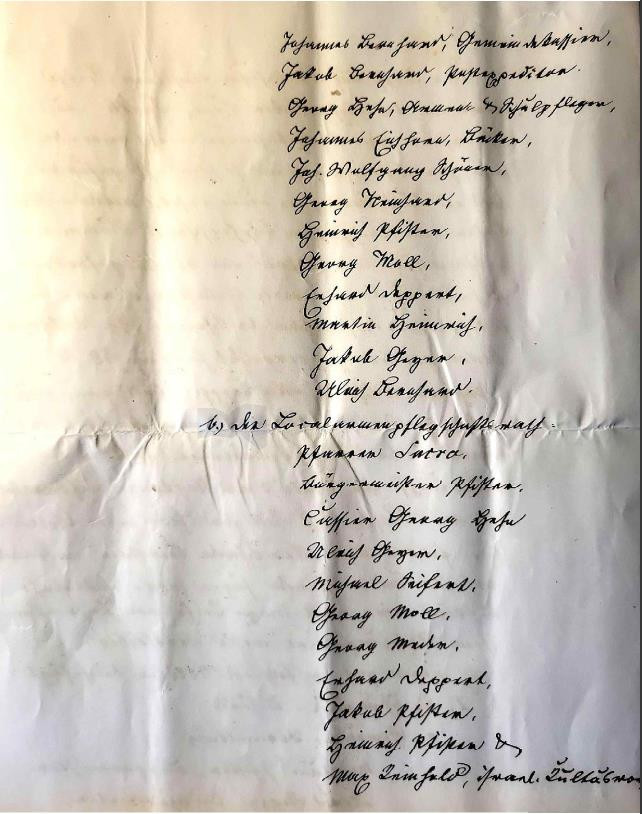 Johannes Bernhard, Gemeindekassier,
Jakob Bernhard, Postexpeditor.
Georg Hehn, Armen- & Schulpfleger,
Johannes Eichhorn, Bäcker,
Joh. Wolfgang Schöner,
Georg Reinhard,
Heinrich Pfister,
Georg Moll,
Erhard Deppert,
Martin Heinrich,
Jakob Geyer,
Ulrich Bernhard.
b, der Localarmenpflegschaftsrath:
Pfarrer Sacro,
Bürgermeister Pfister,
Cassier Georg Hehn
Ulrich Geyer,
Michael Seifert,
Georg Moll,
Georg Meder,
Erhard Deppert,
Jakob Pfister,
Heinrich Pfister &
Max Reinhold, israel.